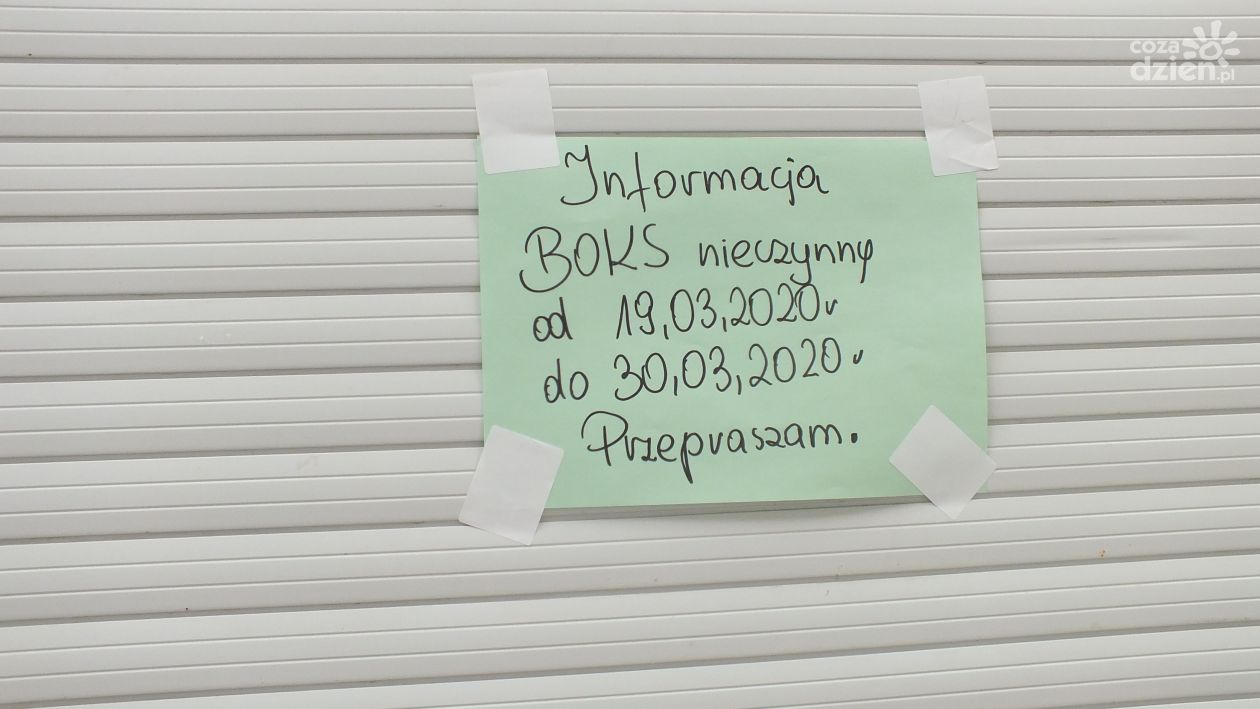 coza
dzien.pl
Informacja
BOKS nieczynny
od 19,03,2020r
do 30,03,2020r
Przepraszam.